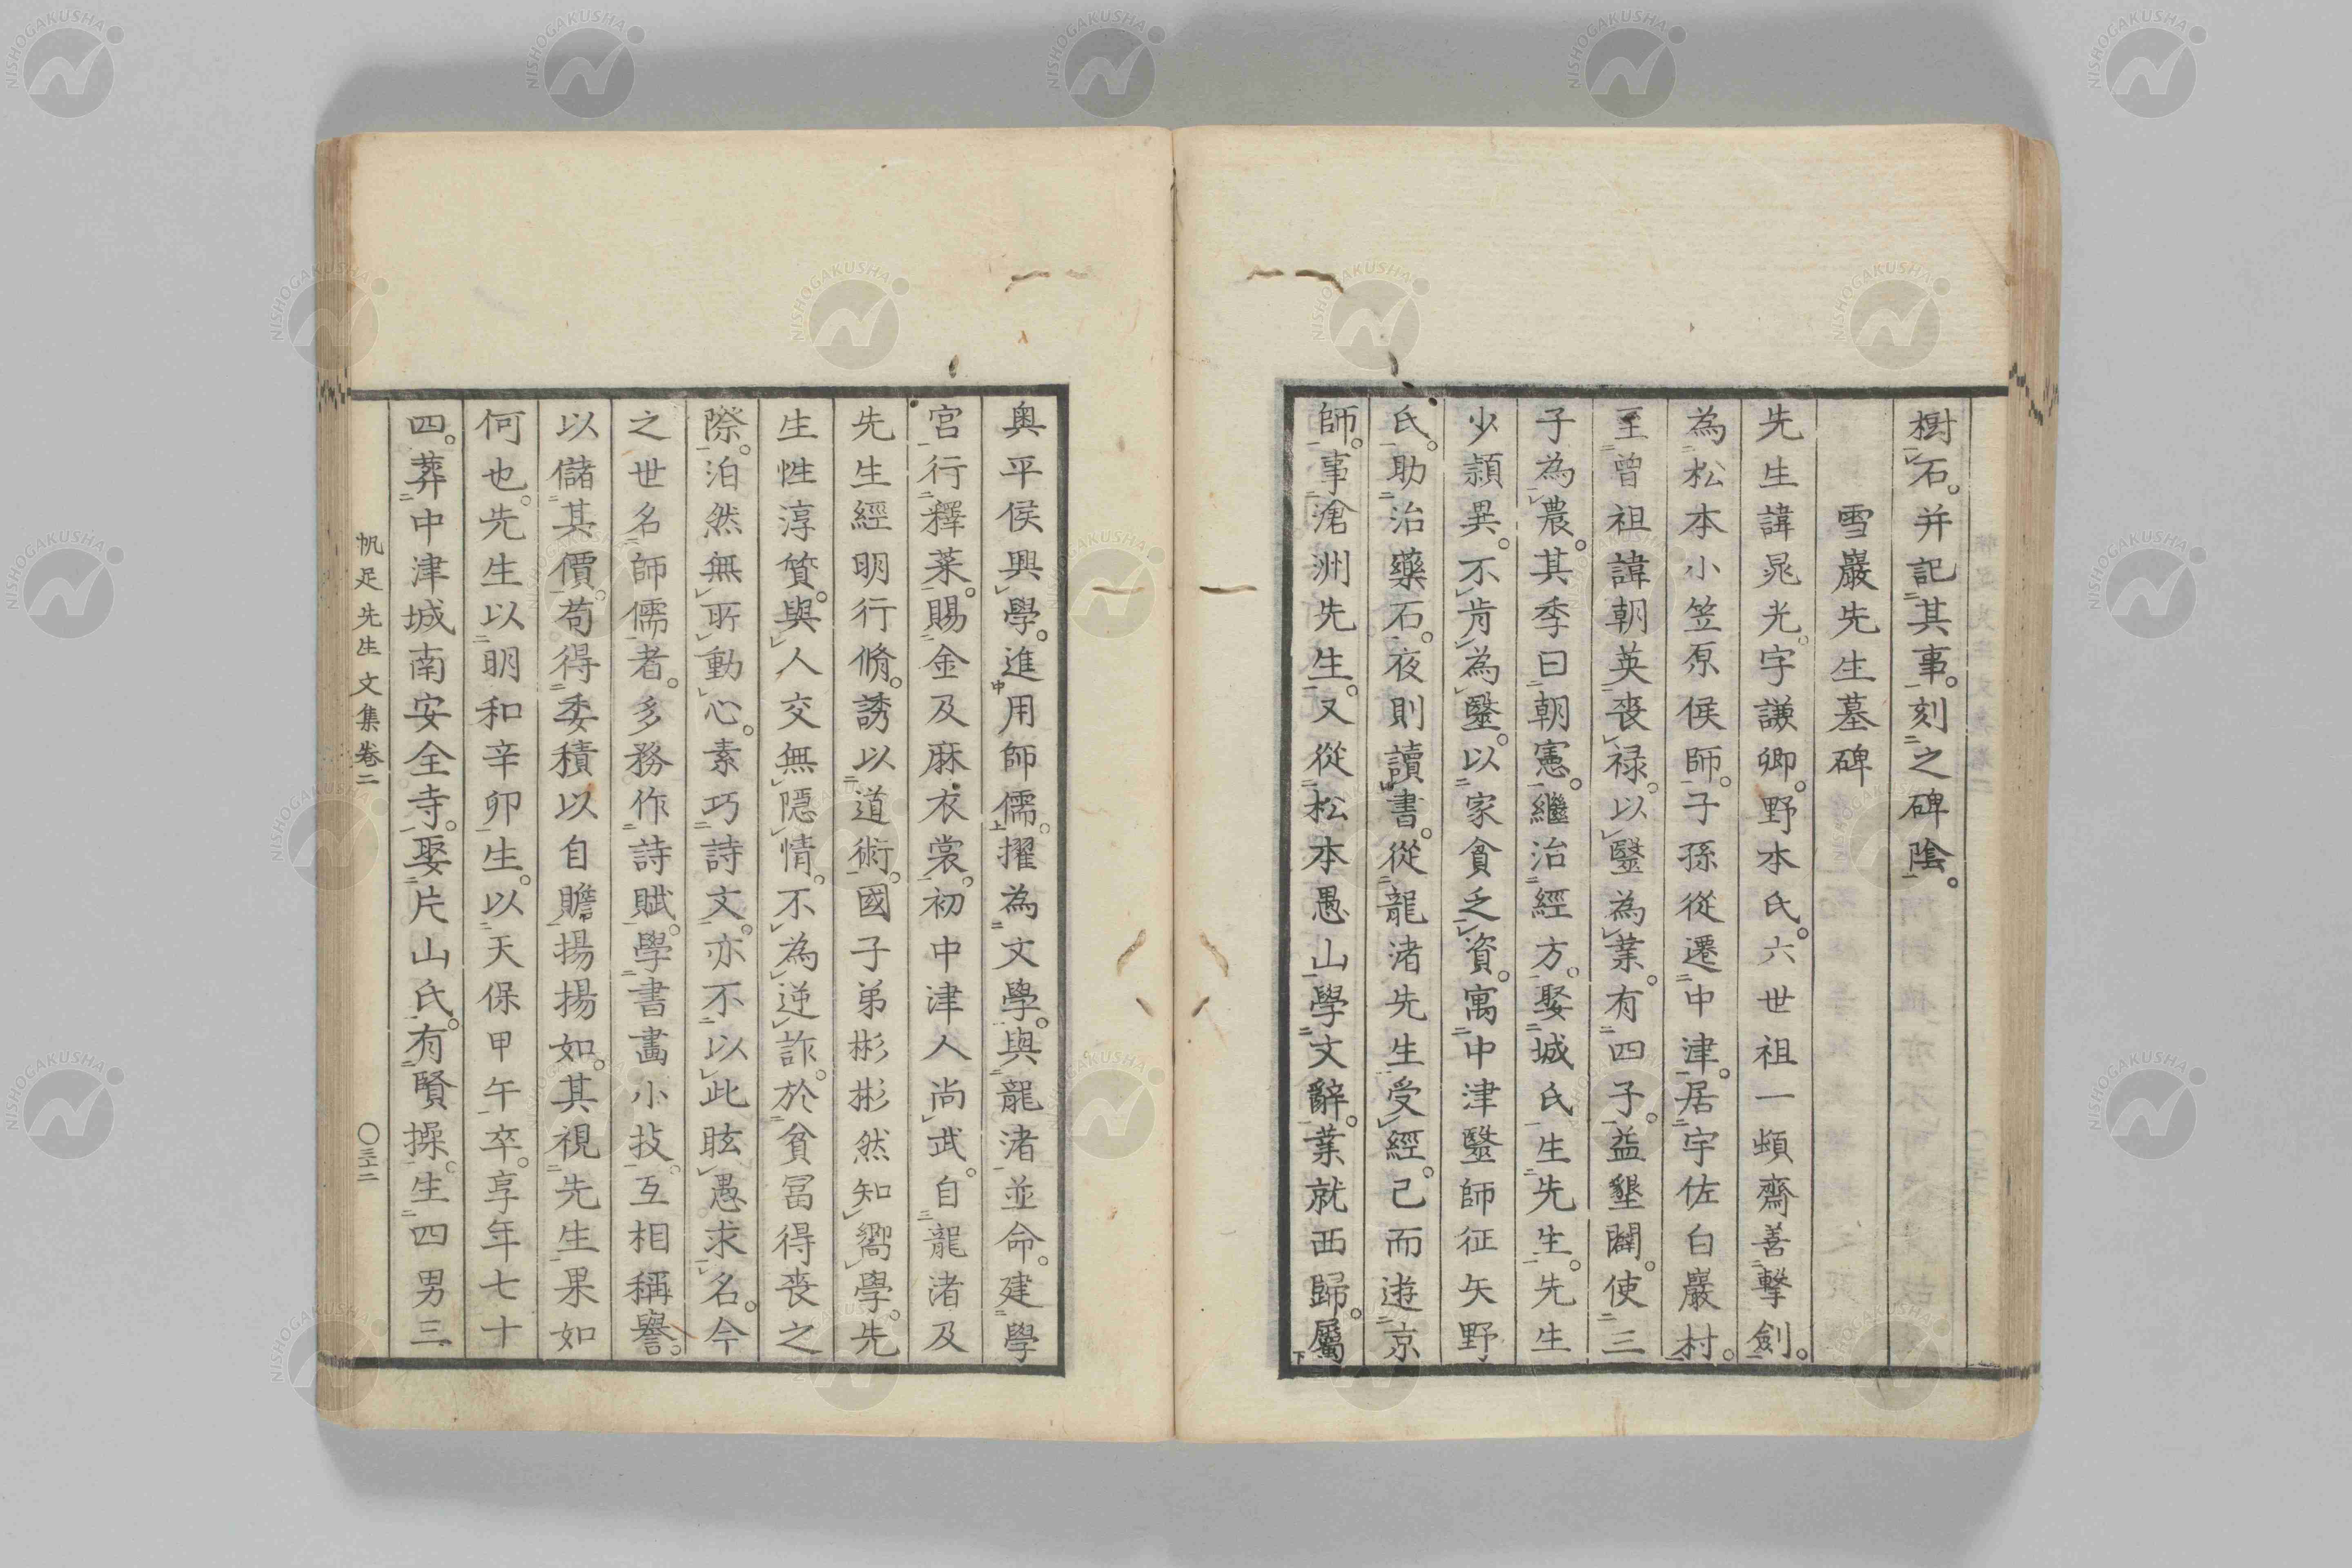 樹石。并記其事。刻之碑陰。
雪巖先生墓碑
先生諱晁光。字謙卿。野本氏。六世祖一蘋齋善擊劍。
為松本小笠原侯師。子孫從遷中津。居宇佐白巖村。
至曾祖諱朝英喪祿。以毉為業。有四子。益墾闢。使三
子為農。其季曰朝憲。繼治經方。娶城氏生先生。先生
少穎異。不肯為毉。以家貧乏資。寓中津毉師征矢野
氏。助治藥石。夜則讀書。從龍渚先生受經。已而遊京
師。事滄洲先生。又從松本愚山學文辭。業就西歸。屬
奧平侯興學。進用師儒。擢為文學。與龍渚並命。建學
宮行釋菜。賜金及麻衣裳。初中津人尚武。自龍渚及
先生經明行脩。誘以道術。國子弟彬彬然知嚮學。先
生性淳質。與人交無隱情。不為逆詐。於貧冨得喪之
際。泊然無所動心。素巧詩文。亦不以此眩愚求名。今
之世名師儒者。多務作詩賦。學書畵小技。互相稱譽。
以儲其價。苟得委積以自贍。揚揚如。其視先生果如
何也。先生以明和辛卯生。以天保甲午卒。享年七十
四。葬中津城南安全寺。娶片山氏。有賢操。生四男三
帆足先生文集卷二
〇三十二
NISHOGAKUSHA